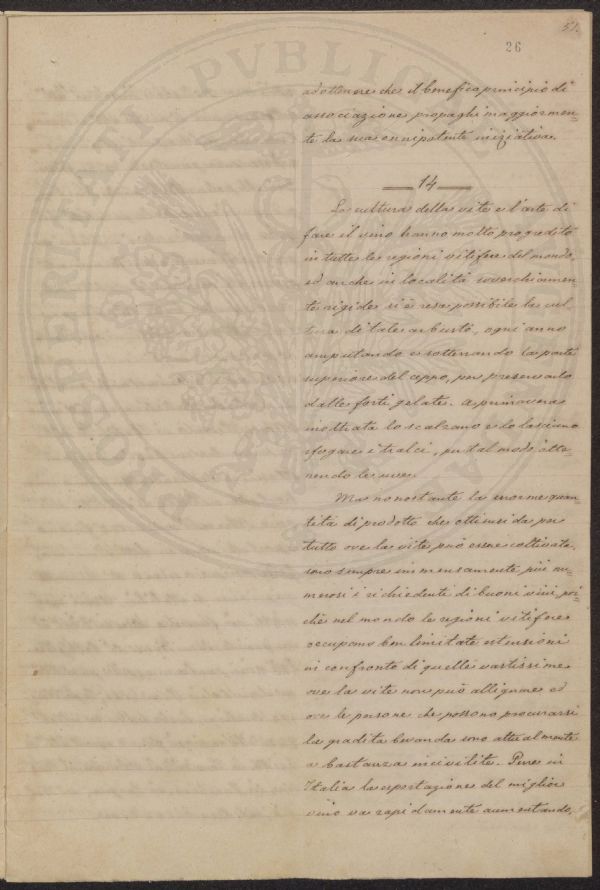 51.
26
PROSPERITATI PVBLICAE
ad ottenere che il benefico principio di
associazione propaghi maggiormen-
te la sua onnipotente iniziativa.
14
La cultura della vite e l'arte di
fare il vino hanno molto progredito
in tutte le regioni vitifere del mondo,
ed anche in località soverchiamen-
te rigide si è resa possibile la cul
tura di tale arbusto, ogni anno
amputando e sotterrando la parte
superiore del ceppo, per preservarlo
dalle forti gelate. A primavera
inoltrata lo scalzano e lo lasciano
sfogare i tralci, per tal modo otte-
nendo le uve.
Ma nonostante la enorme quan-
tità di prodotto che ottiensi da per
tutto ove la vite può essere coltivata,
sono sempre immensamente più nu-
merosi i richiedenti di buoni vini, poi-
chè nel mondo le regioni vitifere
occupano ben limitate estensioni
in confronto di quelle vastissime
ove la vite non può allignare ed
ove le persone che possono procurarsi
la gradita bevanda sono attualmente
a bastanza incivilite. Pure in
Italia la esportazione del miglior
vino va rapidamente aumentando,